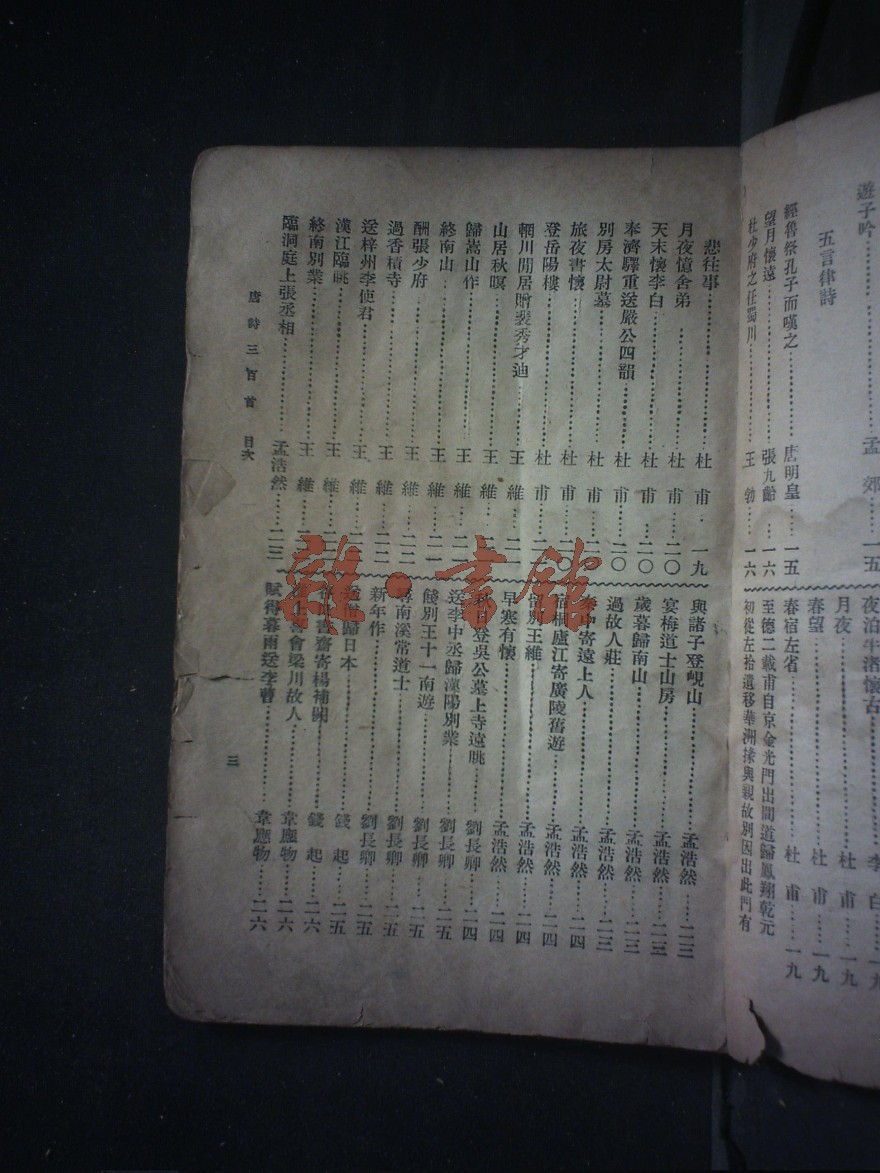 遊子吟 孟郊 一五
五言律詩
經魯祭孔子而嘆之 唐明皇 一五
望月懷遠 張九齡 一六
杜少府之任蜀川 王勃 一六
夜泊牛渚懷古 李白 一九
月夜 杜甫 一九
春望 杜甫 一九
春宿左省 杜甫 一九
至德二載甫自京金光門出間道歸鳳翔乾元
初從左拾遺移華洲掾與親故別因出此門有
悲往事 杜甫 一九
月夜憶舍弟 杜甫 二〇
天末懷李白 杜甫 二〇
奉濟驛重送嚴公四韻 杜甫 二〇
別房太尉墓 杜甫 二〇
旅夜書懷 杜甫 二〇
登岳陽樓 杜甫
輞川閒居贈裴秀才迪 王維
山居秋暝 王維
歸嵩山作 王維
終南山 王維
酬張少府 王維
過香積寺 王維
送梓州李使君 王維
漢江臨眺 王維
終南別業 王維
臨洞庭上張丞相 孟浩然 二三
與諸子登峴山 孟浩然 二三
宴梅道士山房 孟浩然 二三
歲暮歸南山 孟浩然 二三
過故人莊 孟浩然 二三
寄遠上人 孟浩然 二四
廬江寄廣陵舊遊 孟浩然 二四
別王維 孟浩然 二四
早寒有懷 孟浩然 二四
日登吳公墓上寺遠眺 劉長卿 二四
送李中丞歸漢陽別業 劉長卿 二五
餞別王十一南遊 劉長卿 二五
南溪常道士 劉長卿 二五
新年作 劉長卿 二五
歸日本 錢起 二五
書齋寄楊補闕 錢起 二六
喜會梁川故人 韋應物 二六
賦得暮雨送李曹 韋應物 二六
唐詩三百首 目次
三
雜·書館